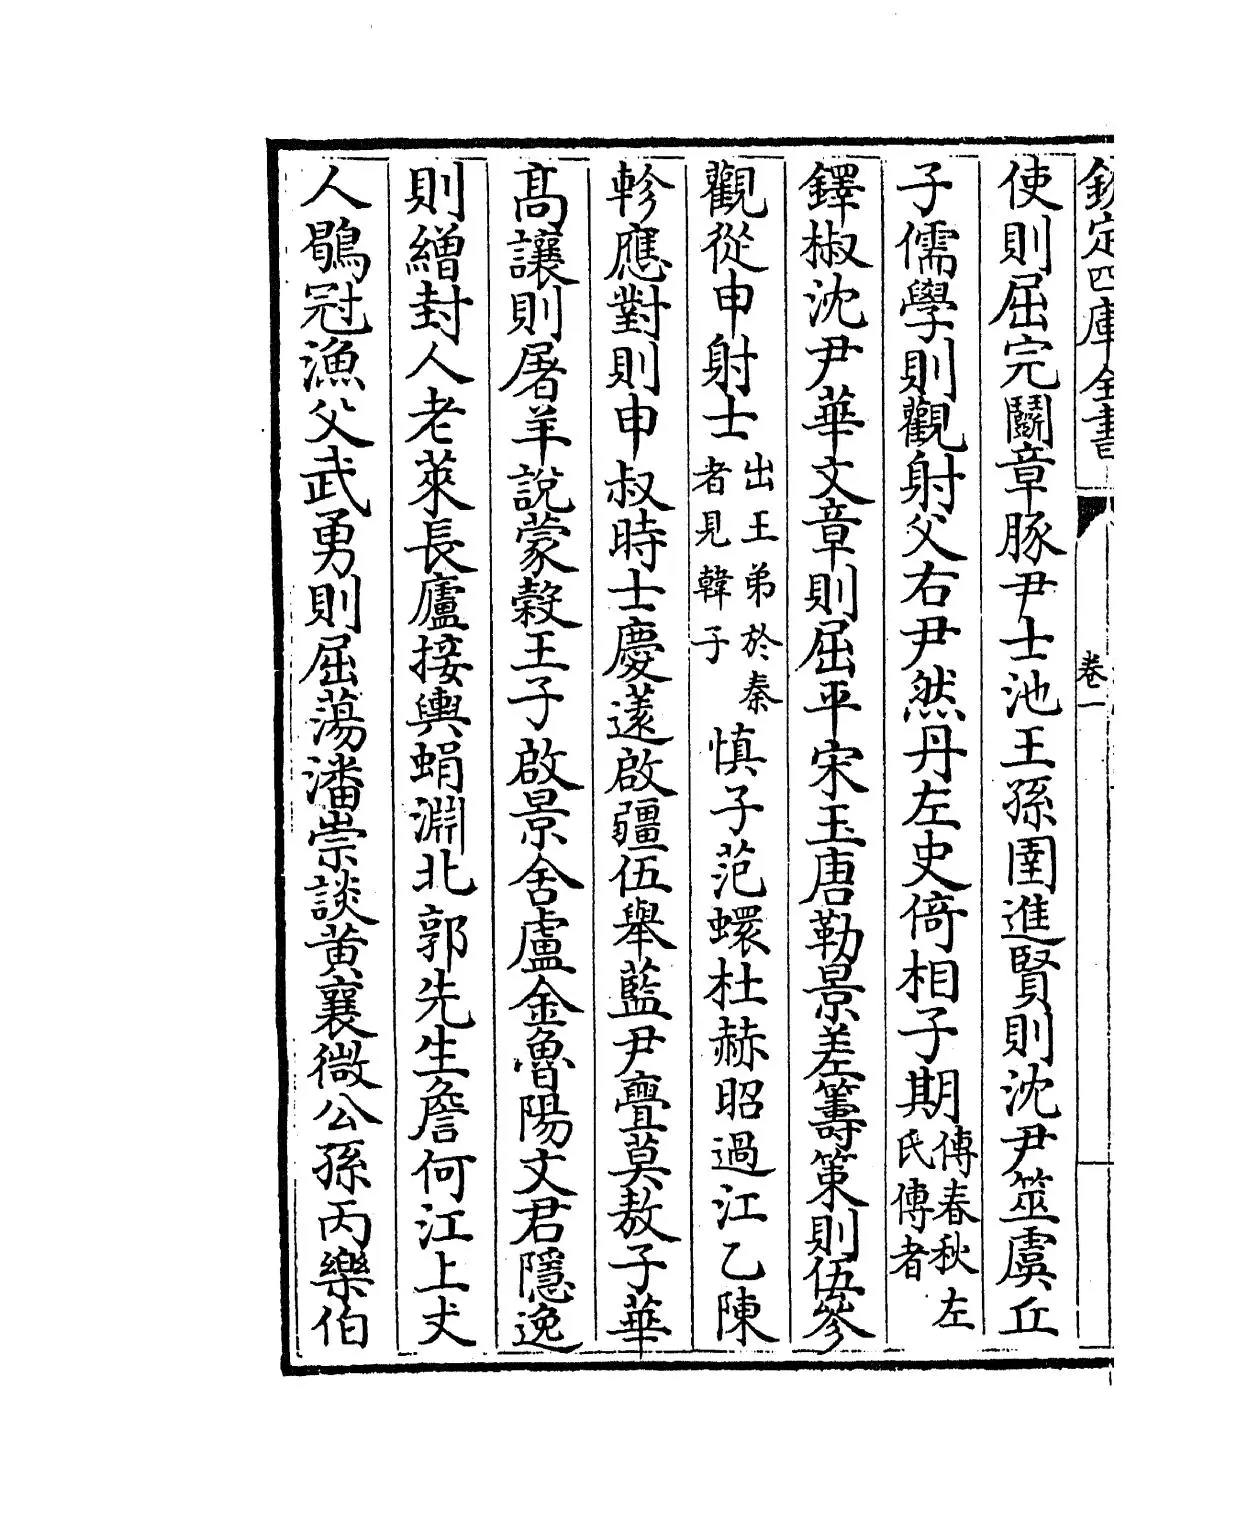 欽定四庫全書
卷一
使則屈完鬭章豚尹士池王孫圉進賢則沈尹筮虞丘
子儒學則觀射父右尹然丹左史倚相子期傳春秋左氏傳者
鐸椒沈尹華文章則屈平宋玉唐勒景差籌策則伍參
觀從申射士出王弟於秦者見韓子慎子范蠉杜赫昭過江乙陳
軫應對則申叔時士慶薳啟疆伍舉藍尹亹莫敖子華
髙讓則屠羊說蒙穀王子啟景舍盧金魯陽文君隱逸
則繒封人老萊長廬接輿蜎淵北郭先生詹何江上丈
人鶡冠漁父武勇則屈蕩潘崇談黃襄微公孫丙樂伯